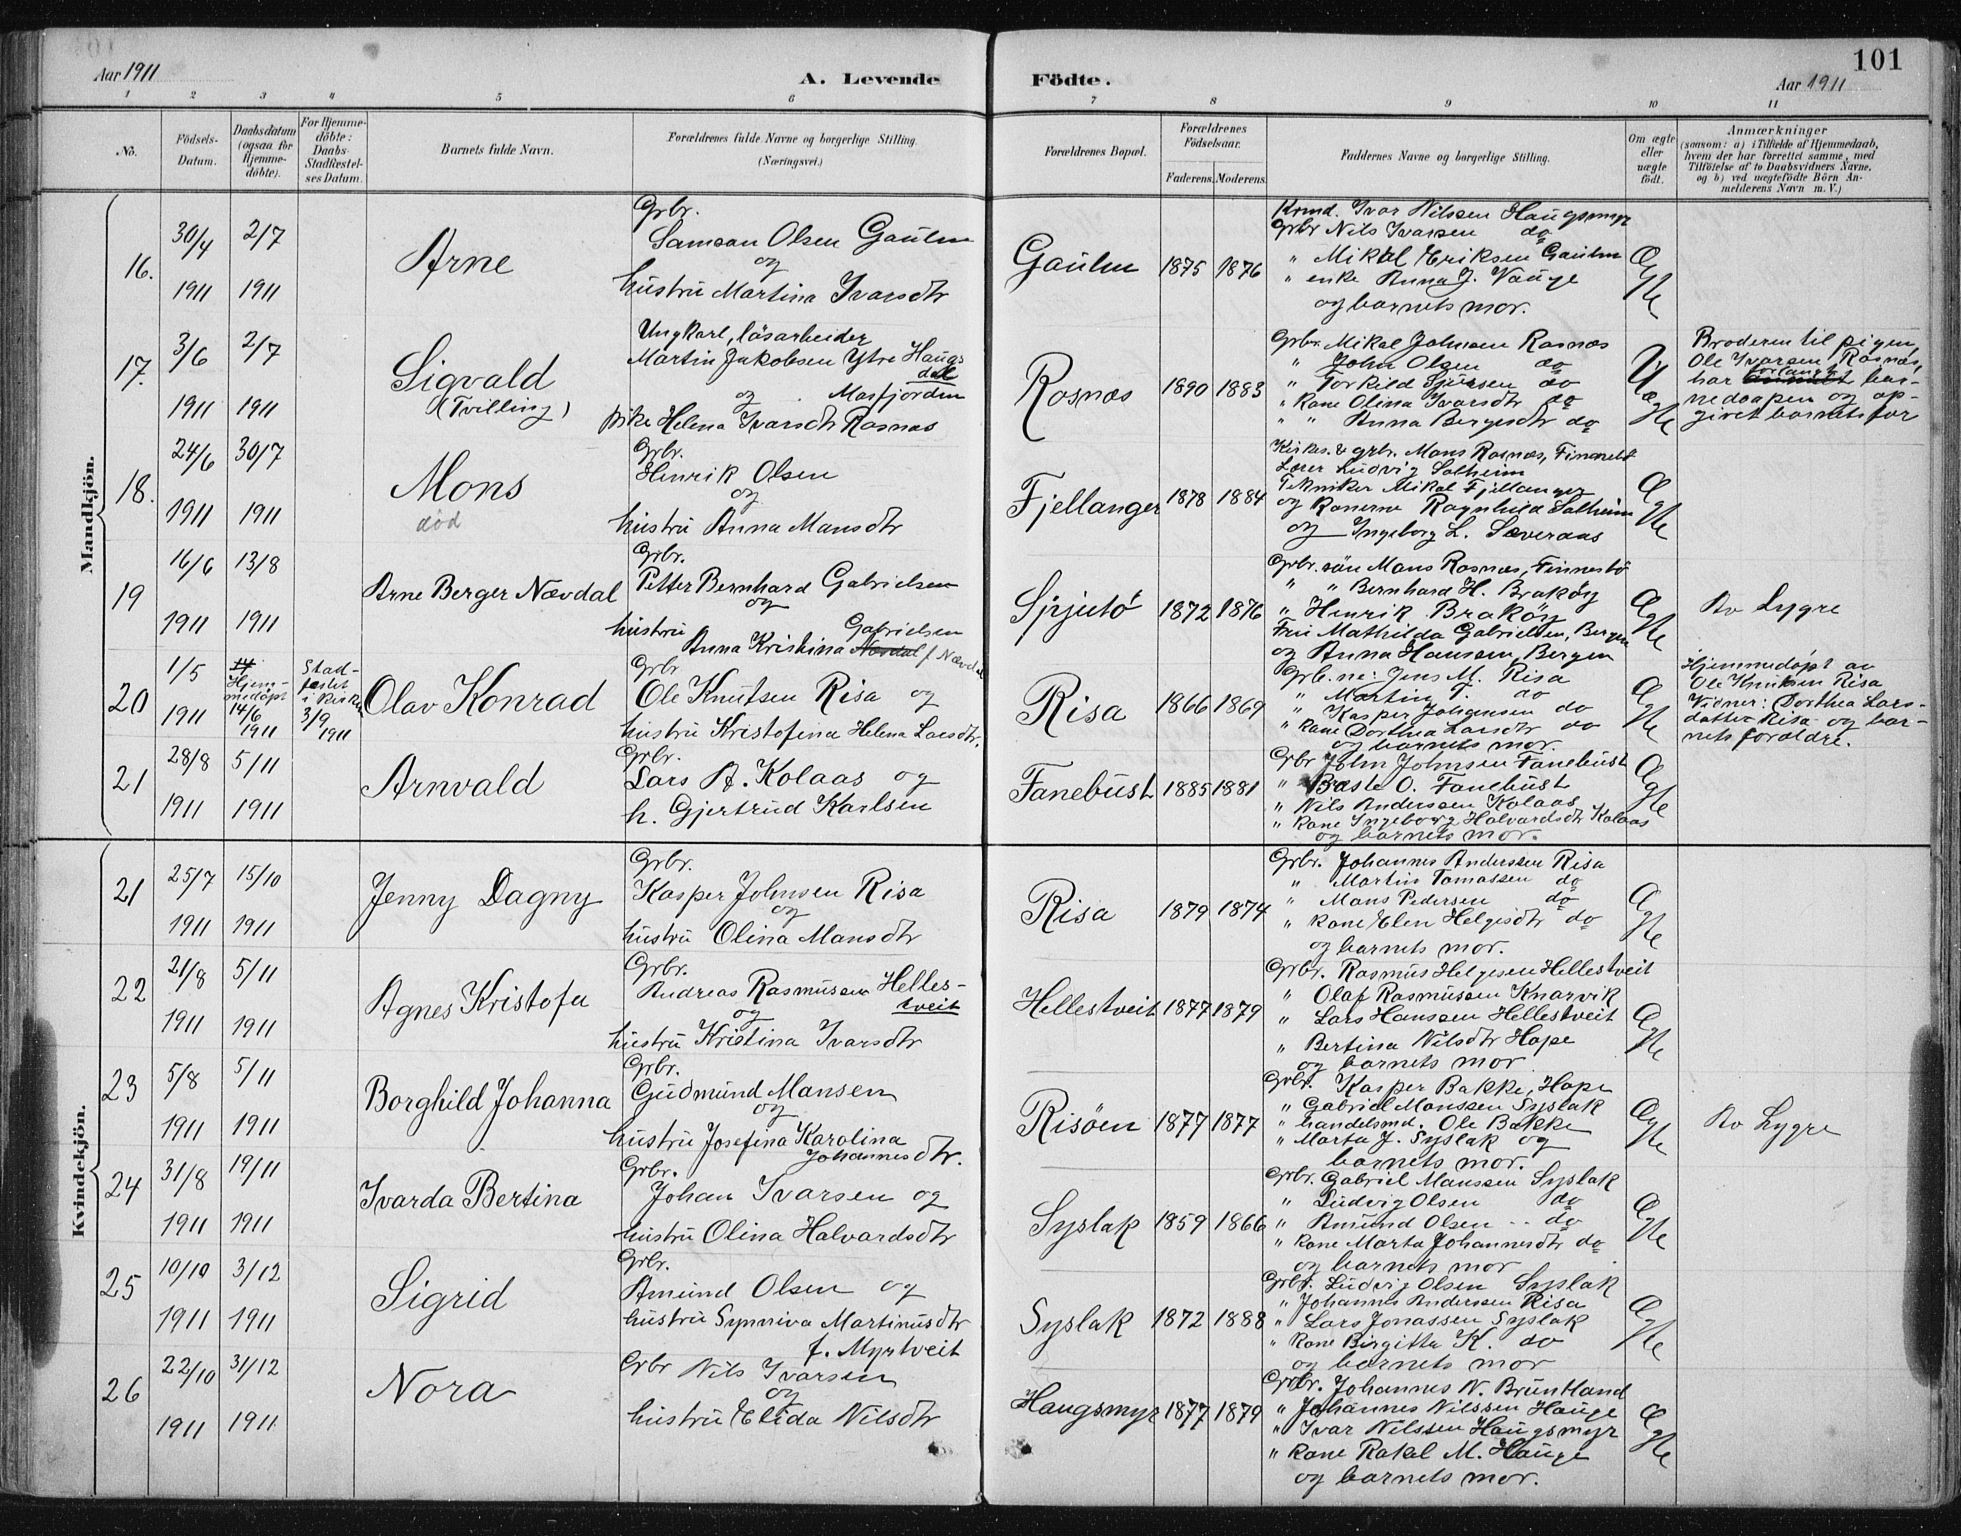 101
Aar 1911
A. Levende
Födte.
Aar 1911
1 2 3 4 5 6 7 8 9 10 11
No.
Födsels-
Datum.
Daabsdatum
(ogsaa for
Hjemme-
döbte).
For Hjemme-
döbte:
Daabs-
Stadfæstel-
ses Datum.
Barnets fulde Navn.
Forældrenes fulde Navne og borgerlige Stilling.
(Næringsvei.)
Forældrenes Bopæl.
Forældrenes
Födselsaar.
Faderens. Moderens.
Faddernes Navne og borgerlige Stilling.
Om ægte
eller
uægte
födt.
Anmærkninger
(saasom: a) i Tilfælde af Hjemmedaab,
hvem der har forrettet samme, med
Tilföielse af to Daabsvidners Navne.
og b) ved uægtefödte Börn An-
melderens Navn m. V.)
Mandkjön.
16.
30/4 1911
2/7 1911
Arne
Grbr.
Samson Olsen Gaulen
og
hustru Martina Ivarsdtr
Gaulen
1875 1876
Krmd. Ivar Nilssen Haugsmyr
Grbr Nils Ivarsen do
" Mikal Eriksen Gaulen
" enke Anna J. Vauge
og barnets mor.
Ægte
17.
3/6 1911
2/7 1911
Sigvald
(Tvilling)
Ungkarl, løsarbeider
Martin Jakobsen Ytre Haugs
dal
og Masfjorden
pike Helena Ivarsdtr Rosnæs
Rosnæs
1890 1883
Grbr. Mikal Johnsen Rosnæs
" John Olsen do
" Torkild Sjursen do
" Kone Olina Ivarsdtr do
" " Anna Bergesdtr do
Uægte
Broderen til pigen,
Ole Ivarsen Rosnæs,
forlangt
har bar-
nedaapen og op-
givet barnets for
18.
24/6 1911
30/7 1911
Mons
död
Grbr.
Henrik Olsen
og
hustru Anna Monsdtr
Fjellanger
1878 1884
Kirkes. & grbr. Mons Rosnæs, Finnesbø
Lærer Ludvig Solheim
Tekniker Mikal Fjellanger
og Konerne Ragnhild Solheim
og Ingeborg L. Sæveraas
Ægte
19
16/6 1911
13/8 1911
Arne Berger Nævdal
Grbr.
Petter Bernhard Gabrielsen
og
hustru Gabrielsen
Anna Kristina Nævdal f. Nævdal
1872 1876
Grbr. søn Mons Rosnæs, Finnesbø
" " Bernhard H. Brakøy
" Henrik Brakøy
Fru Mathilda Gabrielsen, Bergen
og Anna Hansen, Bergen
Ægte
Av Lygre
20
1/5 1911
14
Hjem-
medøpt
14/6
1911
Stad-
festet
i kirken
3/9
1911
Olav Konrad
Grbr
Ole Knutsen Risa og
hustru Kristofina Helena Larsdtr.
Risa
1866 1869
Grb. ne: Jens M. Risa
" Martin T. do
" Kasper Johansen do
" Kone Dorthea Larsdtr do
og barnets mor.
Ægte
Hjemmedøpt av
Ole Knutsen Risa
Vidner: Dorthea Lars-
datter Risa og bar-
nets forældre.
21
28/8 1911
5/11 1911
Arnvald
Grbr.
Lars A. Kolaas og
h. Gjertrud Karlsen
Fanebust
1885 1881
Grbr John Johnsen Fanebust
" Baste O. Fanebust
" Nils Anderssen Kolaas
" Kone Ingeborg Halvardsdtr Kolaas
og barnets mor.
Ægte
Kvindekjön.
21
25/7 1911
15/10 1911
Jenny Dagny
Grbr.
Kasper Johnsen Risa
og
hustru Olina Monsdtr
Risa
1879 1874
Grbr. Johannes Anderssen Risa
" Martin Tomassen do
" Mons Pedersen do
" Kone Elen Helgesdtr do
og barnets mor.
Ægte
22
21/8 1911
5/11 1911
Agnes Kristofa
Grbr.
Andreas Rasmussen Helles-
tveit
og
hustru Kristina Ivarsdtr
Hellestveit
1877 1879
Grbr. Rasmus Helgesen Hellestveit
" Olaf Rasmussen Knarvik
" Lars Hanssen Hellestveit
" Bertina Nilsdtr Hope
og barnets mor
Ægte
23
5/8 1911
5/11 1911
Borghild Johanna
Grbr.
Gudmund Monsen
og
hustru Josefina Karolina
Johannesdtr.
Risöen
1877 1877
Grbr. Kasper Bakke, Hope
" Gabriel Monssen Syslak
" handelsmd. Ole Bakke
" Marta J. Syslak og
barnets mor.
Ægte
Av Lygre
24
31/8 1911
19/11 1911
Ivarda Bertina
Grbr.
Johan Ivarsen og
hustru Olina Halvardsdtr
Syslak
1859 1866
Grbr. Gabriel Monssen Syslak
" Ludvig Olsen do
" Amund Olsen do
" Kone Marta Johannesdtr do
og barnets mor
Ægte
25
10/10 1911
3/12 1911
Sigrid
Grbr.
Amund Olsen og
hustru Synniva Martinusdtr
f. Myrtveit
Syslak
1872 1888
Grbr. Ludvig Olsen Syslak
" Johannes Anderssen Risa
" Lars Jonassen Syslak
" Kone Birgitta K. do
og barnets mor
Ægte
26
22/10 1911
31/12 1911
Nora
Grbr Nils Ivarsen
og
hustru Elida Nilsdtr
Haugsmyr
1877 1879
Grbr. Johannes N. Bruntland
" Johannes Nilssen Hauge
" Ivar Nilssen Haugsmyr
" Kone Rakel M. Hauge
og barnets mor.
Ægte